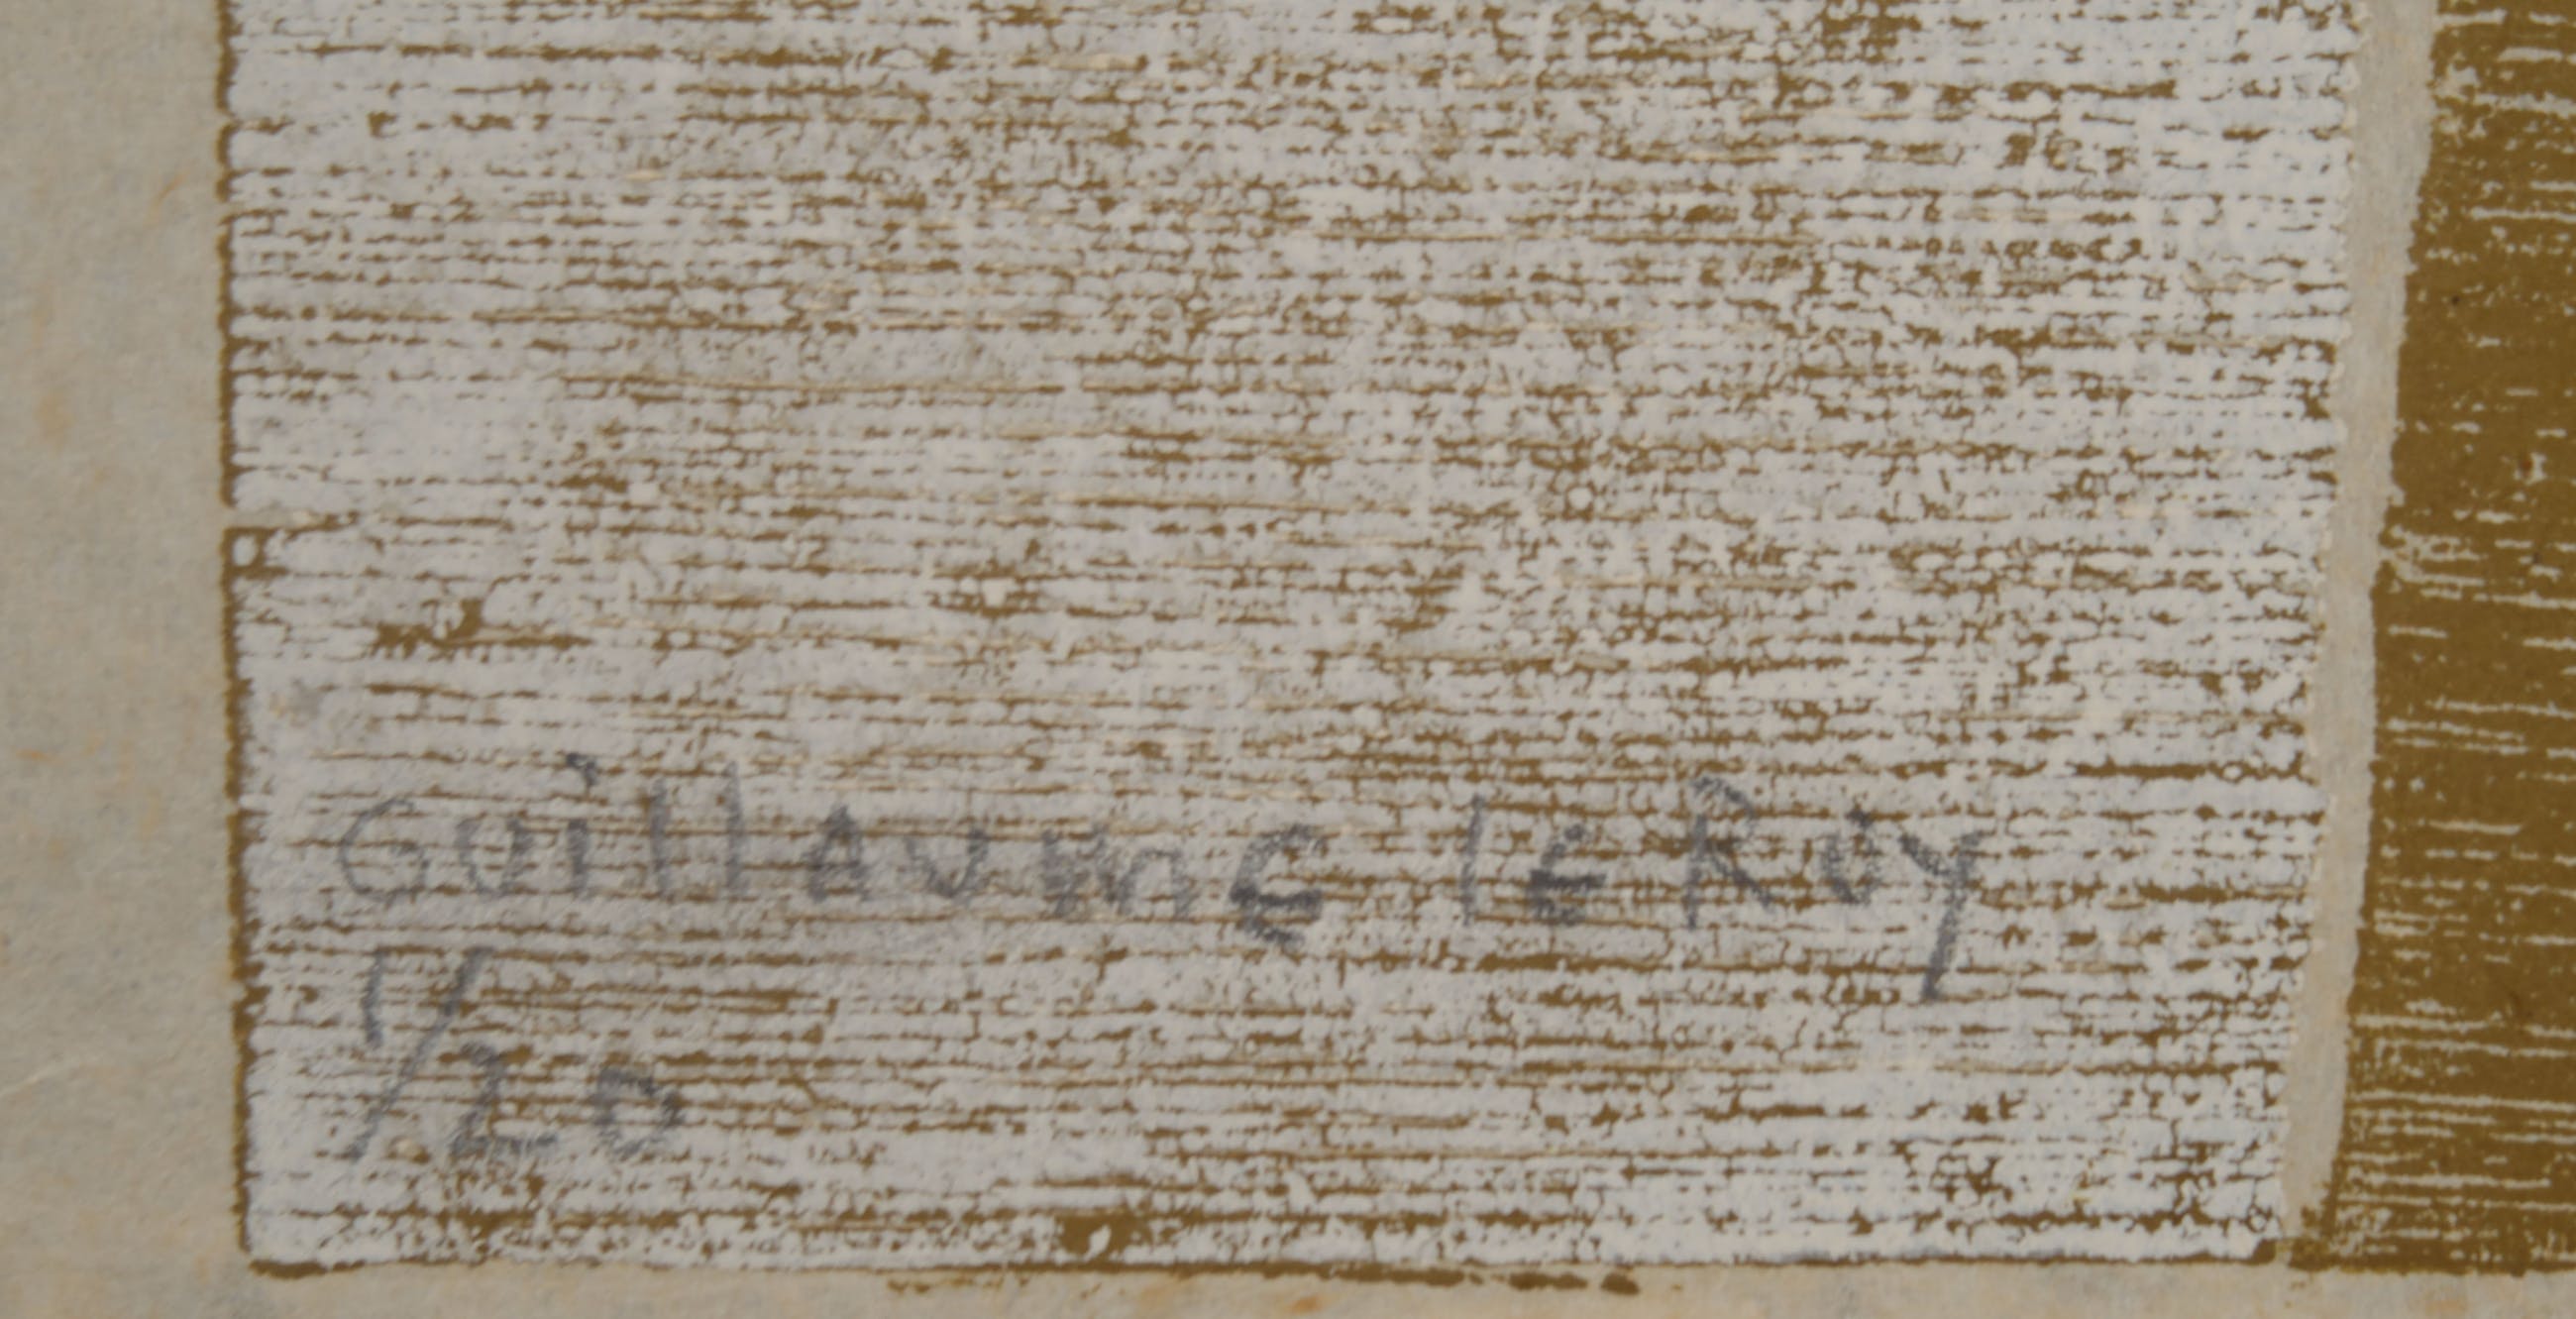 Guillaume le Roy
1/20